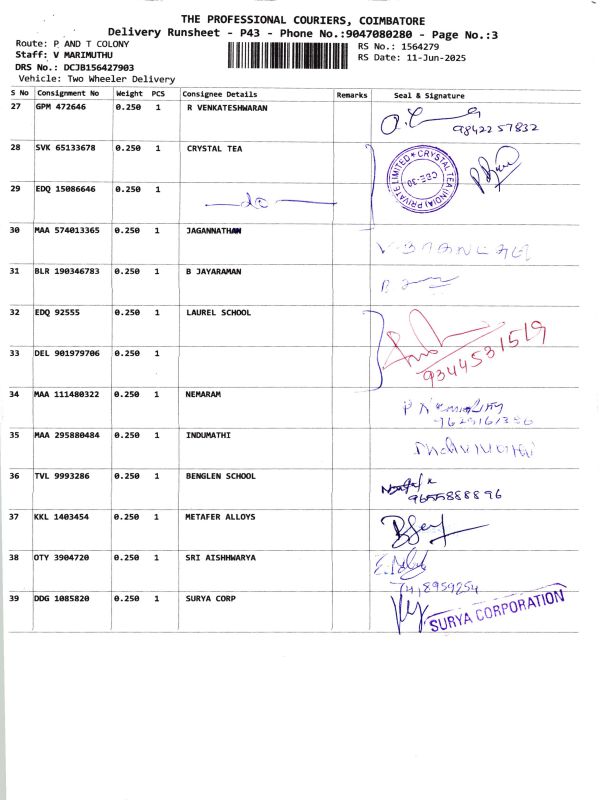 THE PROFESSIONAL COURIERS, COIMBATORE
Delivery Runsheet - P43 - Phone No.:9047080280 - Page No.:3
Route: P AND T COLONY
RS No.: 1564279
Staff: V MARIMUTHU
RS Date: 11-Jun-2025
DRS No.: DCJB156427903
Vehicle: Two Wheeler Delivery
S No Consignment No Weight PCS Consignee Details Remarks Seal & Signature
27 GPM 472646 0.250 1 R VENKATESHWARAN
9842257832
28 SVK 65133678 0.250 1 CRYSTAL TEA
CRYSTAL TEA (INDIA) PRIVATE LIMITED
CBE-30
29 EDQ 15086646 0.250 1 do
30 MAA 574013365 0.250 1 JAGANNATHAN
31 BLR 190346783 0.250 1 B JAYARAMAN
32 EDQ 92555 0.250 1 LAUREL SCHOOL
9344531519
33 DEL 901979706 0.250 1
34 MAA 111480322 0.250 1 NEMARAM
35 MAA 295880484 0.250 1 INDUMATHI
36 TVL 9993286 0.250 1 BENGLEN SCHOOL
9655888896
37 KKL 1403454 0.250 1 METAFER ALLOYS
38 OTY 3904720 0.250 1 SRI AISHHWARYA
39 DDG 1085820 0.250 1 SURYA CORP
SURYA CORPORATION